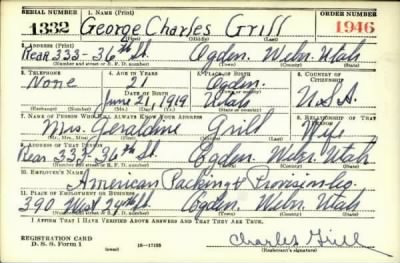 SERIAL NUMBER 1. NAME (Print) ORDER NUMBER
1332 George Charles Grill 1946
(First) (Middle) (Last)
2. ADDRESS (Print)
Rear 333-36th St. Ogden, Weber, Utah
(Number and street or R. F. D. number) (Town) (County) (State)
3. TELEPHONE 4. AGE IN YEARS 5. PLACE OF BIRTH 6. COUNTRY OF CITIZENSHIP
None 21 Ogden
DATE OF BIRTH
June 21, 1919 Utah U.S.A.
(Exchange) (Number) (Mo.) (Day) (Yr.) (State or country)
7. NAME OF PERSON WHO WILL ALWAYS KNOW YOUR ADDRESS 8. RELATIONSHIP OF THAT PERSON
Mrs. Geraldine Grill Wife
(Mr., Mrs., Miss) (First) (Middle) (Last)
9. ADDRESS OF THAT PERSON
Rear 333-36th St. Ogden Weber Utah
(Number and street or R. F. D. number) (Town) (County) (State)
10. EMPLOYER'S NAME
American Packing & Provision Co.
11. PLACE OF EMPLOYMENT OR BUSINESS
390 West 24th St Ogden Weber Utah
(Number and street or R. F. D. number) (Town) (County) (State)
I AFFIRM THAT I HAVE VERIFIED ABOVE ANSWERS AND THAT THEY ARE TRUE.
REGISTRATION CARD
D. S. S. Form 1 16-17105 Charles Grill
(Registrant's signature)